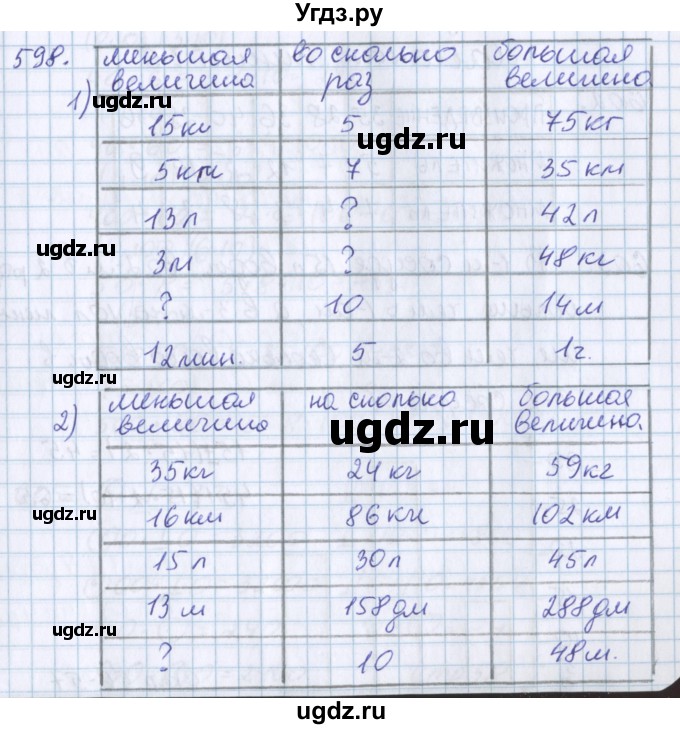 Угдз.ру
598.
1)
меньшая величина во сколько раз большая величина
15кг 5 75кг
5км 7 35 км
13л ? 42л
3м ? 48кг
? 10 14м
12мин. 5 1г.
2)
меньшая величина на сколько большая величина.
35кг 24 кг 59кг
16 км 86 км 102 км
15 л 30л 45л
13 м 158дм 288дм
? 10 48м.
ugdz.ru
ugdz.ru
ugdz.ru
ugdz.ru
ugdz.ru
ugdz.ru
ugdz.ru
ugdz.ru
ugdz.ru